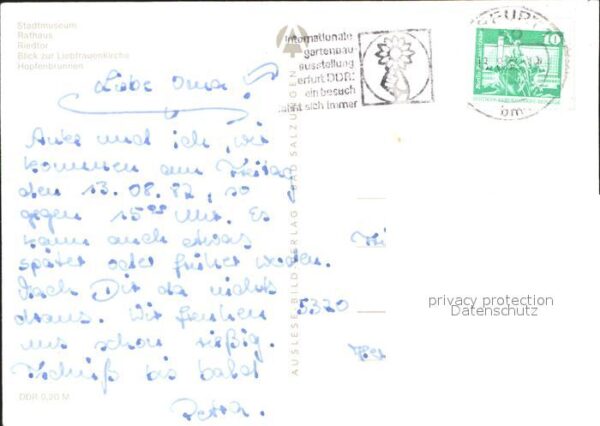 Stadtmuseum
Rathaus
Riedtor
Blick zur Liebfrauenkirche
Hopfenbrunnen
Liebe Oma!
Anke und ich, wir
kommen am Freitag
den 13.08.82, so
gegen 15⁰⁰ Uhr. Es
kann auch etwas
später oder früher werden.
Mach Dir da nichts
draus. Wir freuen
uns schon riesig.
Tschüß bis bald
Petra.
DDR 0,20 M
AUSLESE-BILD-VERLAG BAD SALZUNGEN
internationale
gartenbau
ausstellung
erfurt DDR:
ein besuch
lohnt sich immer
ERFURT
10
5320
privacy protection
Datenschutz